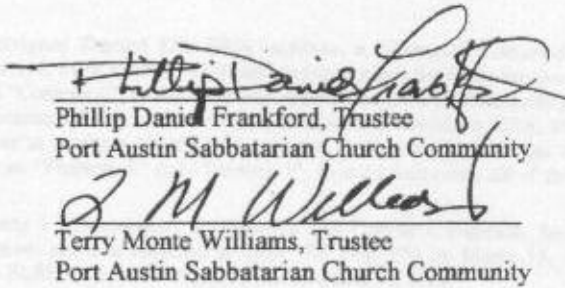 Phillip Daniel Frankford
Phillip Daniel Frankford, Trustee
Port Austin Sabbatarian Church Community
T M Williams
Terry Monte Williams, Trustee
Port Austin Sabbatarian Church Community